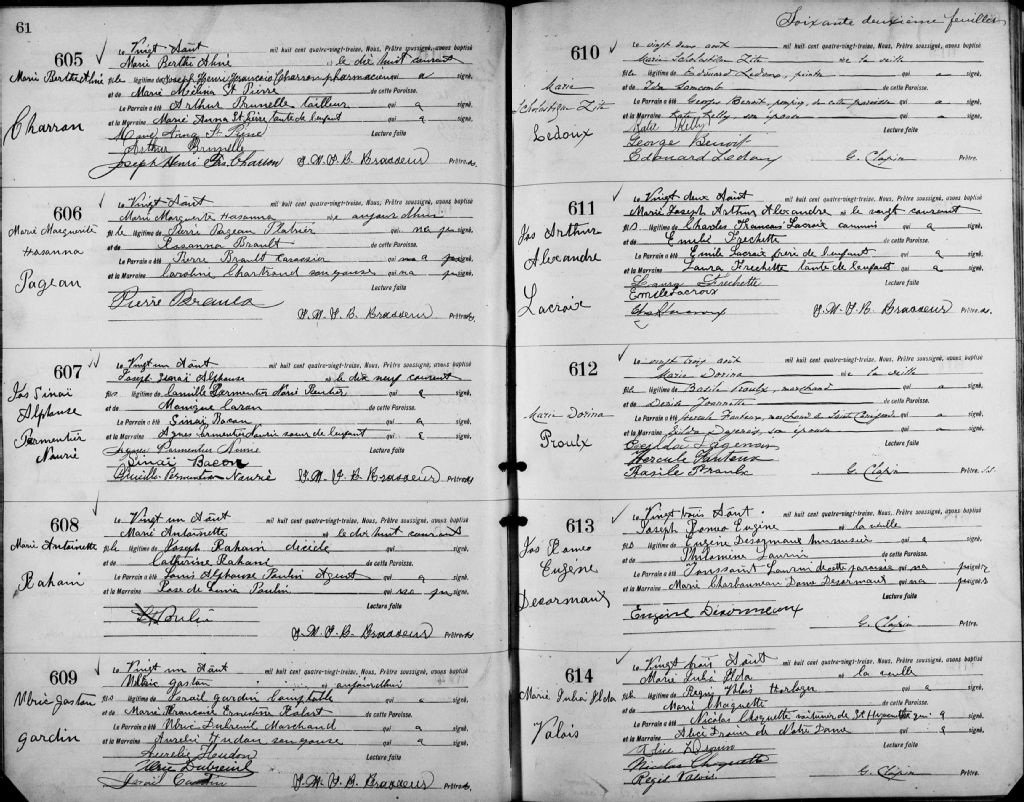 61
605
Le Vingt Août mil huit cent quatre-vingt-treize, Nous, Prêtre soussigné, avons baptisé
Marie Berthe Aliné né le dix huit courant
Marie Berthe Aliné fille légitime de Joseph Henri François Charron pharmacien qui a signé,
et de Marie Mélina St Pierre de cette Paroisse.
Le Parrain a été Arthur Brunelle tailleur qui a signé.
Charron et la Marraine Marie Anna St Pierre tante de l'enfant qui a signé.
Marie Anna St Pierre Lecture faite
Arthur Brunelle
Joseph Henri Frs. Charron J. M. J. B. Brasseur Prêtre
606
Le Vingt Août mil huit cent quatre-vingt-treize, Nous, Prêtre soussigné, avons baptisé
Marie Marguerite Hosanna née aujourdhui
Marie Marguerite Hosanna fille légitime de Pierre Pagean Platrier qui na pu signé,
et de Rosanna Brault de cette Paroisse.
Le Parrain a été Pierre Brault qui a signé.
Pagean et la Marraine Caroline Chartrand son épouse qui na pu signé.
Lecture faite
Pierre Brault
J. M. J. B. Brasseur Prêtre
607
Le Vingt un Août mil huit cent quatre-vingt-treize, Nous, Prêtre soussigné, avons baptisé
Joseph Sinaï Alphonse né le dix neuf courant
Jos Sinaï Alphonse fils légitime de Camille Parmentier Nourie Rentier qui a signé,
et de Monique Caron de cette Paroisse.
Le Parrain a été Sinaï Bacon qui a signé.
Parmentier Nourié et la Marraine Agnes Parmentier Nourie sœur de l'enfant qui a signé.
Agnes Parmentier Nourie Lecture faite
Sinaï Bacon
Camille Parmentier Nourié J. M. J. B. Brasseur Prêtre
608
Le Vingt un Août mil huit cent quatre-vingt-treize, Nous, Prêtre soussigné, avons baptisé
Marie Antoinette née le dix huit courant
Marie Antoinette fille légitime de Joseph Rahami décédé qui signé,
et de Catherine Rahami de cette Paroisse.
Rahami Le Parrain a été Louis Alphonse Poulin Agent qui a signé.
et la Marraine Rose de Lima Poulin qui na pu signé.
Lecture faite
L. A. Poulin
J. M. J. B. Brasseur Prêtre
609
Le Vingt un Août mil huit cent quatre-vingt-treize, Nous, Prêtre soussigné, avons baptisé
Ulric Gaston né aujourdhui
Ulric Gaston fils légitime de Israil Gardin comptable qui a signé,
et de Marie Françoise Ernestine de cette Paroisse.
Le Parrain a été Ulric Dubreuil Marchand qui a signé.
Gardin et la Marraine Aurelie Hudon son épouse qui a signé.
Aurelie Hudon Lecture faite
Ulric Dubreuil
J. M. J. B. Brasseur Prêtre
Soixante deuxième feuillet
610
Le vingt deux août mil huit cent quatre-vingt-treize, Nous, Prêtre soussigné, avons baptisé
Marie Scholastique Zite née la veille
Marie Scholastique Zite fille légitime de Edouard Ledoux, peintre qui a signé,
et de Ida Lamcomb de cette Paroisse.
Le Parrain a été Georges Benoit, pompier, de cette paroisse qui a signé.
Ledoux et la Marraine Katie Kelly, son épouse qui a signé.
Katie Kelly Lecture faite
George Benoit
Edouard Ledoux G. Clapin Prêtre.
611
Le Vingt deux Août mil huit cent quatre-vingt-treize, Nous, Prêtre soussigné, avons baptisé
Marie Joseph Arthur Alexandre né le vingt courant
Jos Arthur Alexandre fils légitime de Charles François Lacroix commis qui a signé,
et de Emilie Frechette de cette Paroisse.
Le Parrain a été Emile Lacroix frère de l'enfant qui a signé.
Lacroix et la Marraine Laura Frechette tante de l'enfant qui a signé.
Laura Frechette Lecture faite
Emile Lacroix
Chs Lacroix J. M. J. B. Brasseur Prêtre
612
Le vingt trois août mil huit cent quatre-vingt-treize, Nous, Prêtre soussigné, avons baptisé
Marie Dorina née la veille
fille légitime de Basile Proulx, marchand qui a signé,
Marie Dorina et de Jeannotte de cette Paroisse.
Le Parrain a été Hercule Fauteux, marchand de Saint qui a signé.
Proulx et la Marraine Exilda Dagenais, son épouse qui a signé.
Exilda Dagenais Lecture faite
Hercule Fauteux
Basile Proulx G. Clapin Prêtre
613
Le Vingt trois Août mil huit cent quatre-vingt-treize, Nous, Prêtre soussigné, avons baptisé
Joseph Romeo Eugène né la veille
Jos Romeo Eugène fils légitime de Eugène Desormaux menuisier qui a signé,
et de Philomène Laurin de cette Paroisse.
Le Parrain a été Toussaint Laurin de cette paroisse qui na pas signé
Desormaux et la Marraine Marie Charbonneau Dame Desormaux qui na pas signé
Lecture faite
Eugène Desormeaux
G. Clapin Prêtre.
614
Le Vingt trois Août mil huit cent quatre-vingt-treize, Nous, Prêtre soussigné, avons baptisé
Marie Julia Ilda née la veille
Marie Julia Ilda fille légitime de Regis Valois Horloger qui a signé,
et de Marie Choquette de cette Paroisse.
Le Parrain a été Nicolas Choquette voiturier de St Hyacinthe qui a signé.
Valois et la Marraine Alice Drouin de Notre Dame qui a signé.
Alice Drouin Lecture faite
Nicolas Choquette
Regis Valois G. Clapin Prêtre.